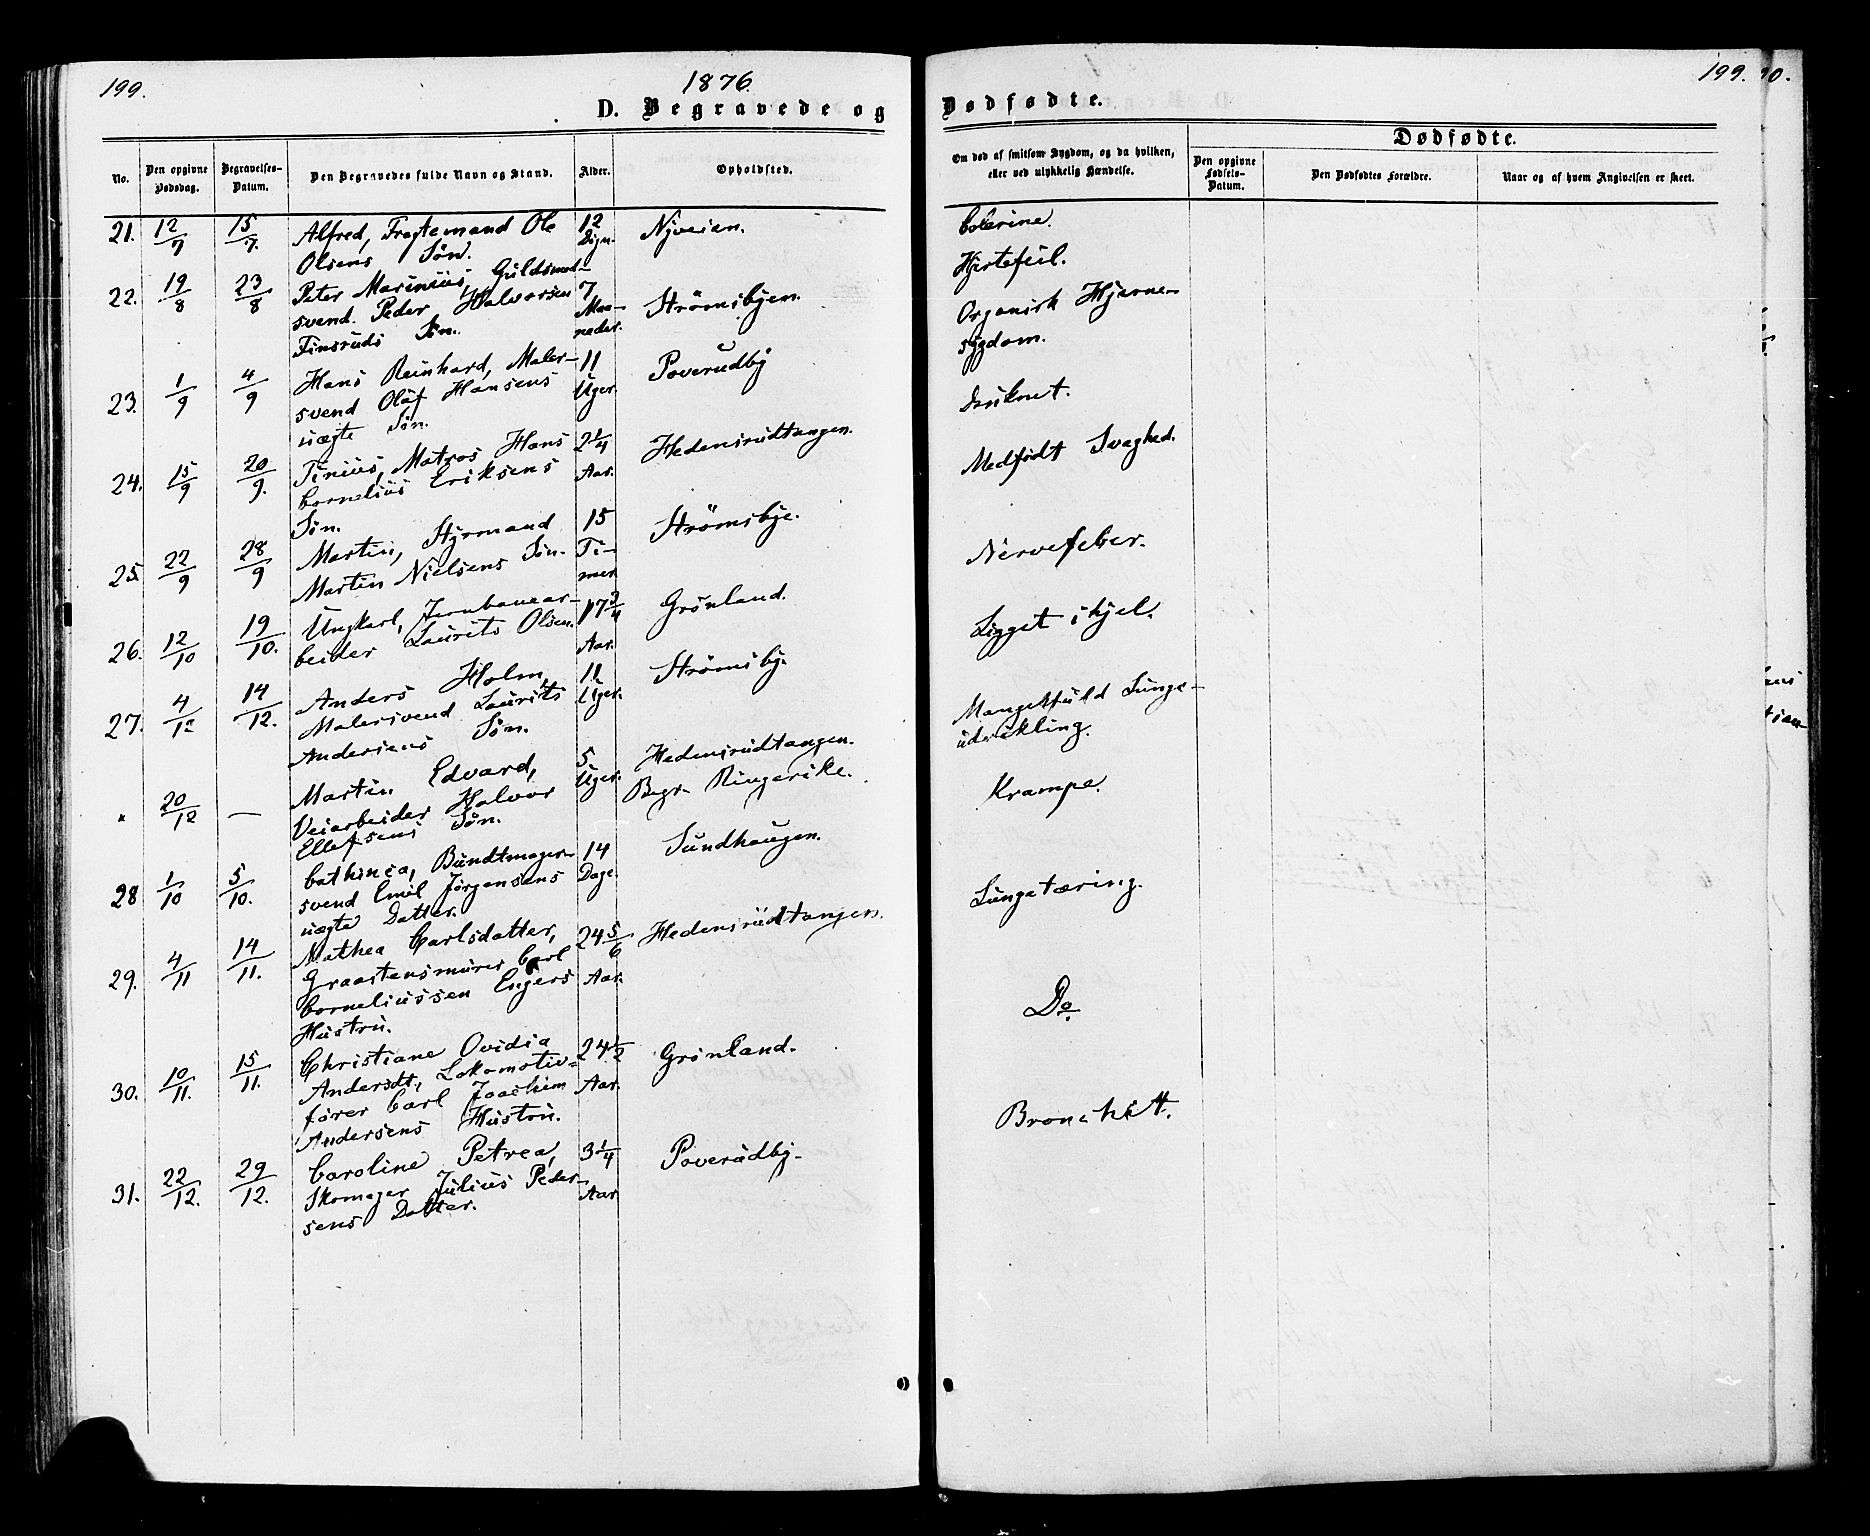 199.
1876.
D. Begravede og
No.
Den opgivne Dødsdag.
Begravelses-Datum.
Den Begravedes fulde Navn og Stand.
Alder.
Opholdsted.
21. 12/7 15/7. Alfred, Fragtemand Ole 12 Nyveien.
Olsens Søn. Dgn.
22. 19/8 23/8 Peter Marinius, Guldsmed- 7 Strömsbyen.
svend. Peder Halvorsen Maa-
Finsruds Søn. neder.
23. 1/9 4/9 Hans Reinhard, Maler- 11 Poverudby
svend Olaf Hansens Uger.
uægte Søn.
24. 15/9 20/9. Tinius, Matros Hans 2 1/4 Hedensrudtangen.
Cornelius Eriksens Aar.
Søn.
25. 22/9 28/9 Martin, Styrmand 15 Strömsbye.
Martin Nielsens Søn. Ti-
mer
26. 12/10 19/10. Ungkarl, Jernbanear- 17 3/4 Grønland.
beider Laurits Olsen. Aar.
27. 4/12 14/12. Anders Holm, 11 Strömsby.
Malersvend Laurits Uger.
Andersens Søn.
" 20/12 — Martin Edvard, 5 Hedensrudtangen.
Veiarbeider Halvor Uger. Begr. Ringerike.
Ellefsens Søn.
28 1/10 5/10. Cathinca, Bundtmager- 14 Sundhaugen.
svend Emil Jørgensens Dage.
uægte Datter.
29. 4/11 14/11. Mathea Carlsdatter, 24 5/6 Hedensrudtangen.
Graastensmurer Carl Aar.
Corneliussen Engers
Hustru.
30. 10/11. 15/11. Christiane Ovidia 24 1/2 Grønland.
Andersdt., Lokomotiv- Aar.
fører Carl Joachim
Andersens Hustru.
31. 22/12. 29/12. Caroline Petrea, 3 1/4 Poverudby.
Skomager Julius Peder- Aar.
sens Datter.
199.
Dødfødte.
Om død af smitsom Sygdom, og da hvilken,
eller ved ulykkelig Hændelse.
Dødfødte.
Den opgivne Fødsels-Datum.
Den Dødfødtes Forældre.
Naar og af hvem Angivelsen er skeet.
Colerine.
Hjertefeil.
Organisk Hjerne-
sygdom.
Druknet.
Medfødt Svaghed.
Nervefeber.
Ligget ihjel.
Mangelfuld Lunge-
udvikling.
Krampe.
Lungetæring.
Do.
Bronchit.